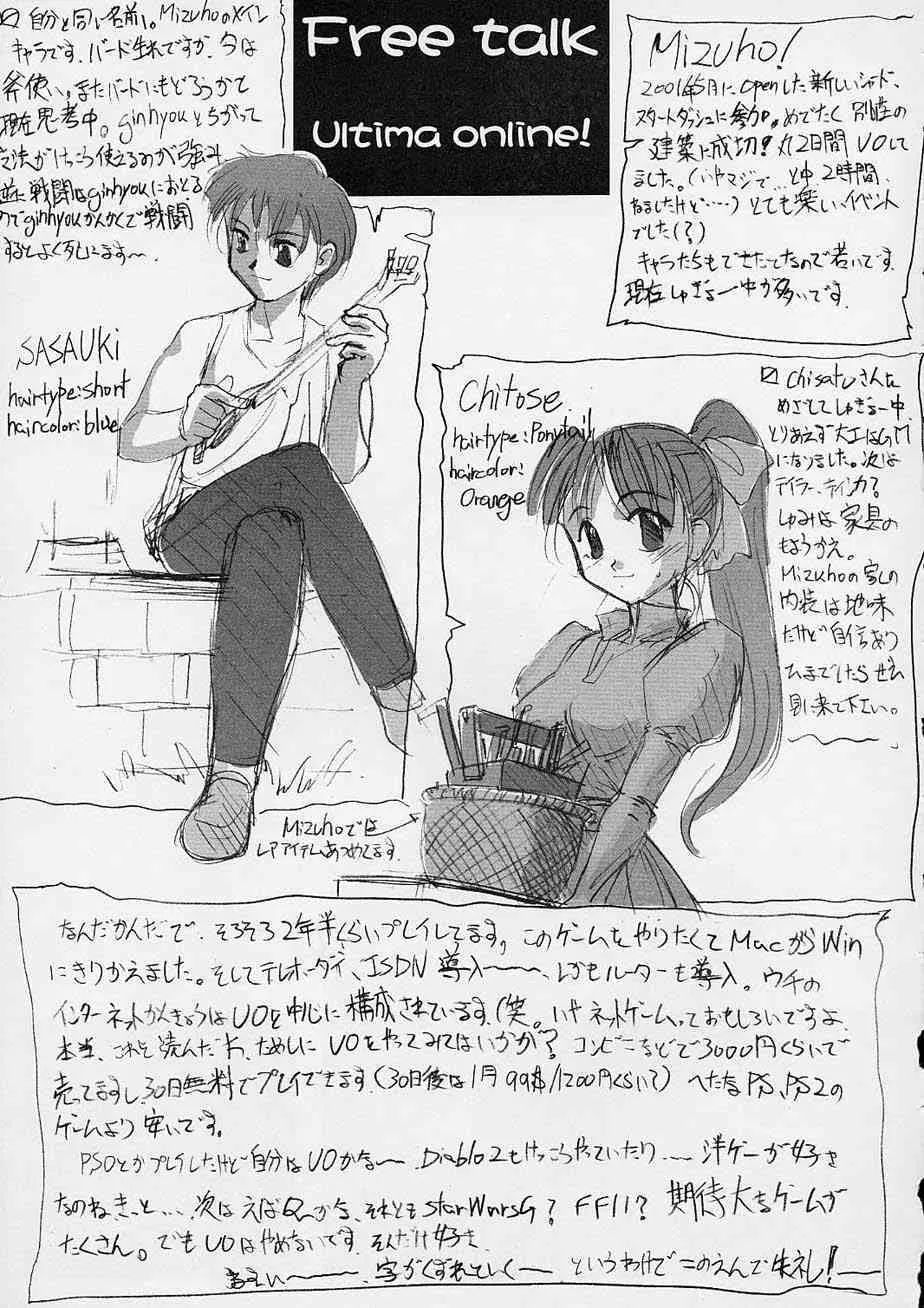 Free talk
Ultima online!
自分と同じ名前。Mizuhoのメイン
キャラです。バード生れですが、今は
斧使い。またバードにもどろうかで
現在思考中。ginhyouとちがって
魔法がけっこう使えるのが強み
逆に戦闘はginhyouにおとる
のでginhyouかんかくで戦闘
するとよく死にます〜。
SASAUKi
hairtype:short
haircolor:blue
Mizuho!
2001年5月にOpenした新しいシャド、
スタートダッシュに参加。めでたく別荘の
建築に成功!丸2日間UOして
ました。(いやマジで…と中2時間、
ねましたけど……)とても楽しいイベント
でした(?)
キャラたちもできたてなので若いです。
現在しゅぎょー中が多いです。
Chitose
hairtype:Ponytail
haircolor:
Orange
Chisatoさんを
めざしてしゅぎょー中
とりあえず大工はGM
になりました。次は
テイラー、ティンカ?
しゅみは家具の
もようがえ。
Mizuhoの家の
内装は地味
だけど自信あり
ひまでしたらぜひ
見に来て下さい。
Mizuhoでは
レアアイテムあつめてます。
なんだかんだで、そろそろ2年半くらいプレイしてます。このゲームをやりたくてMacからWin
にきりかえました。そしてテレホーダイ、ISDN導入〜〜、しかもルーターも導入。ウチの
インターネットかんきょうはUOを中心に構成されています。(笑。いやネットゲームっておもしろいですよ、
本当、これを読んだ方、ためしにUOをやってみてはいかが?コンビニなどで3000円くらいで
売ってますし、30日無料でプレイできます(30日後は1月99$/1200円くらい?)へたなPS、PS2の
ゲームより安いです。
PSOとかプレイしたけど自分はUOかな〜 Diablo2もけっこうやっていたり…洋ゲーが好き
なのねきっと…、次はえばQuかな、それともstarWarsG?FF11?期待大なゲームが
たくさん。でもUOはやめないです。そんだけ好き。
字がくずれていく〜 というわけでこのへんで失礼!